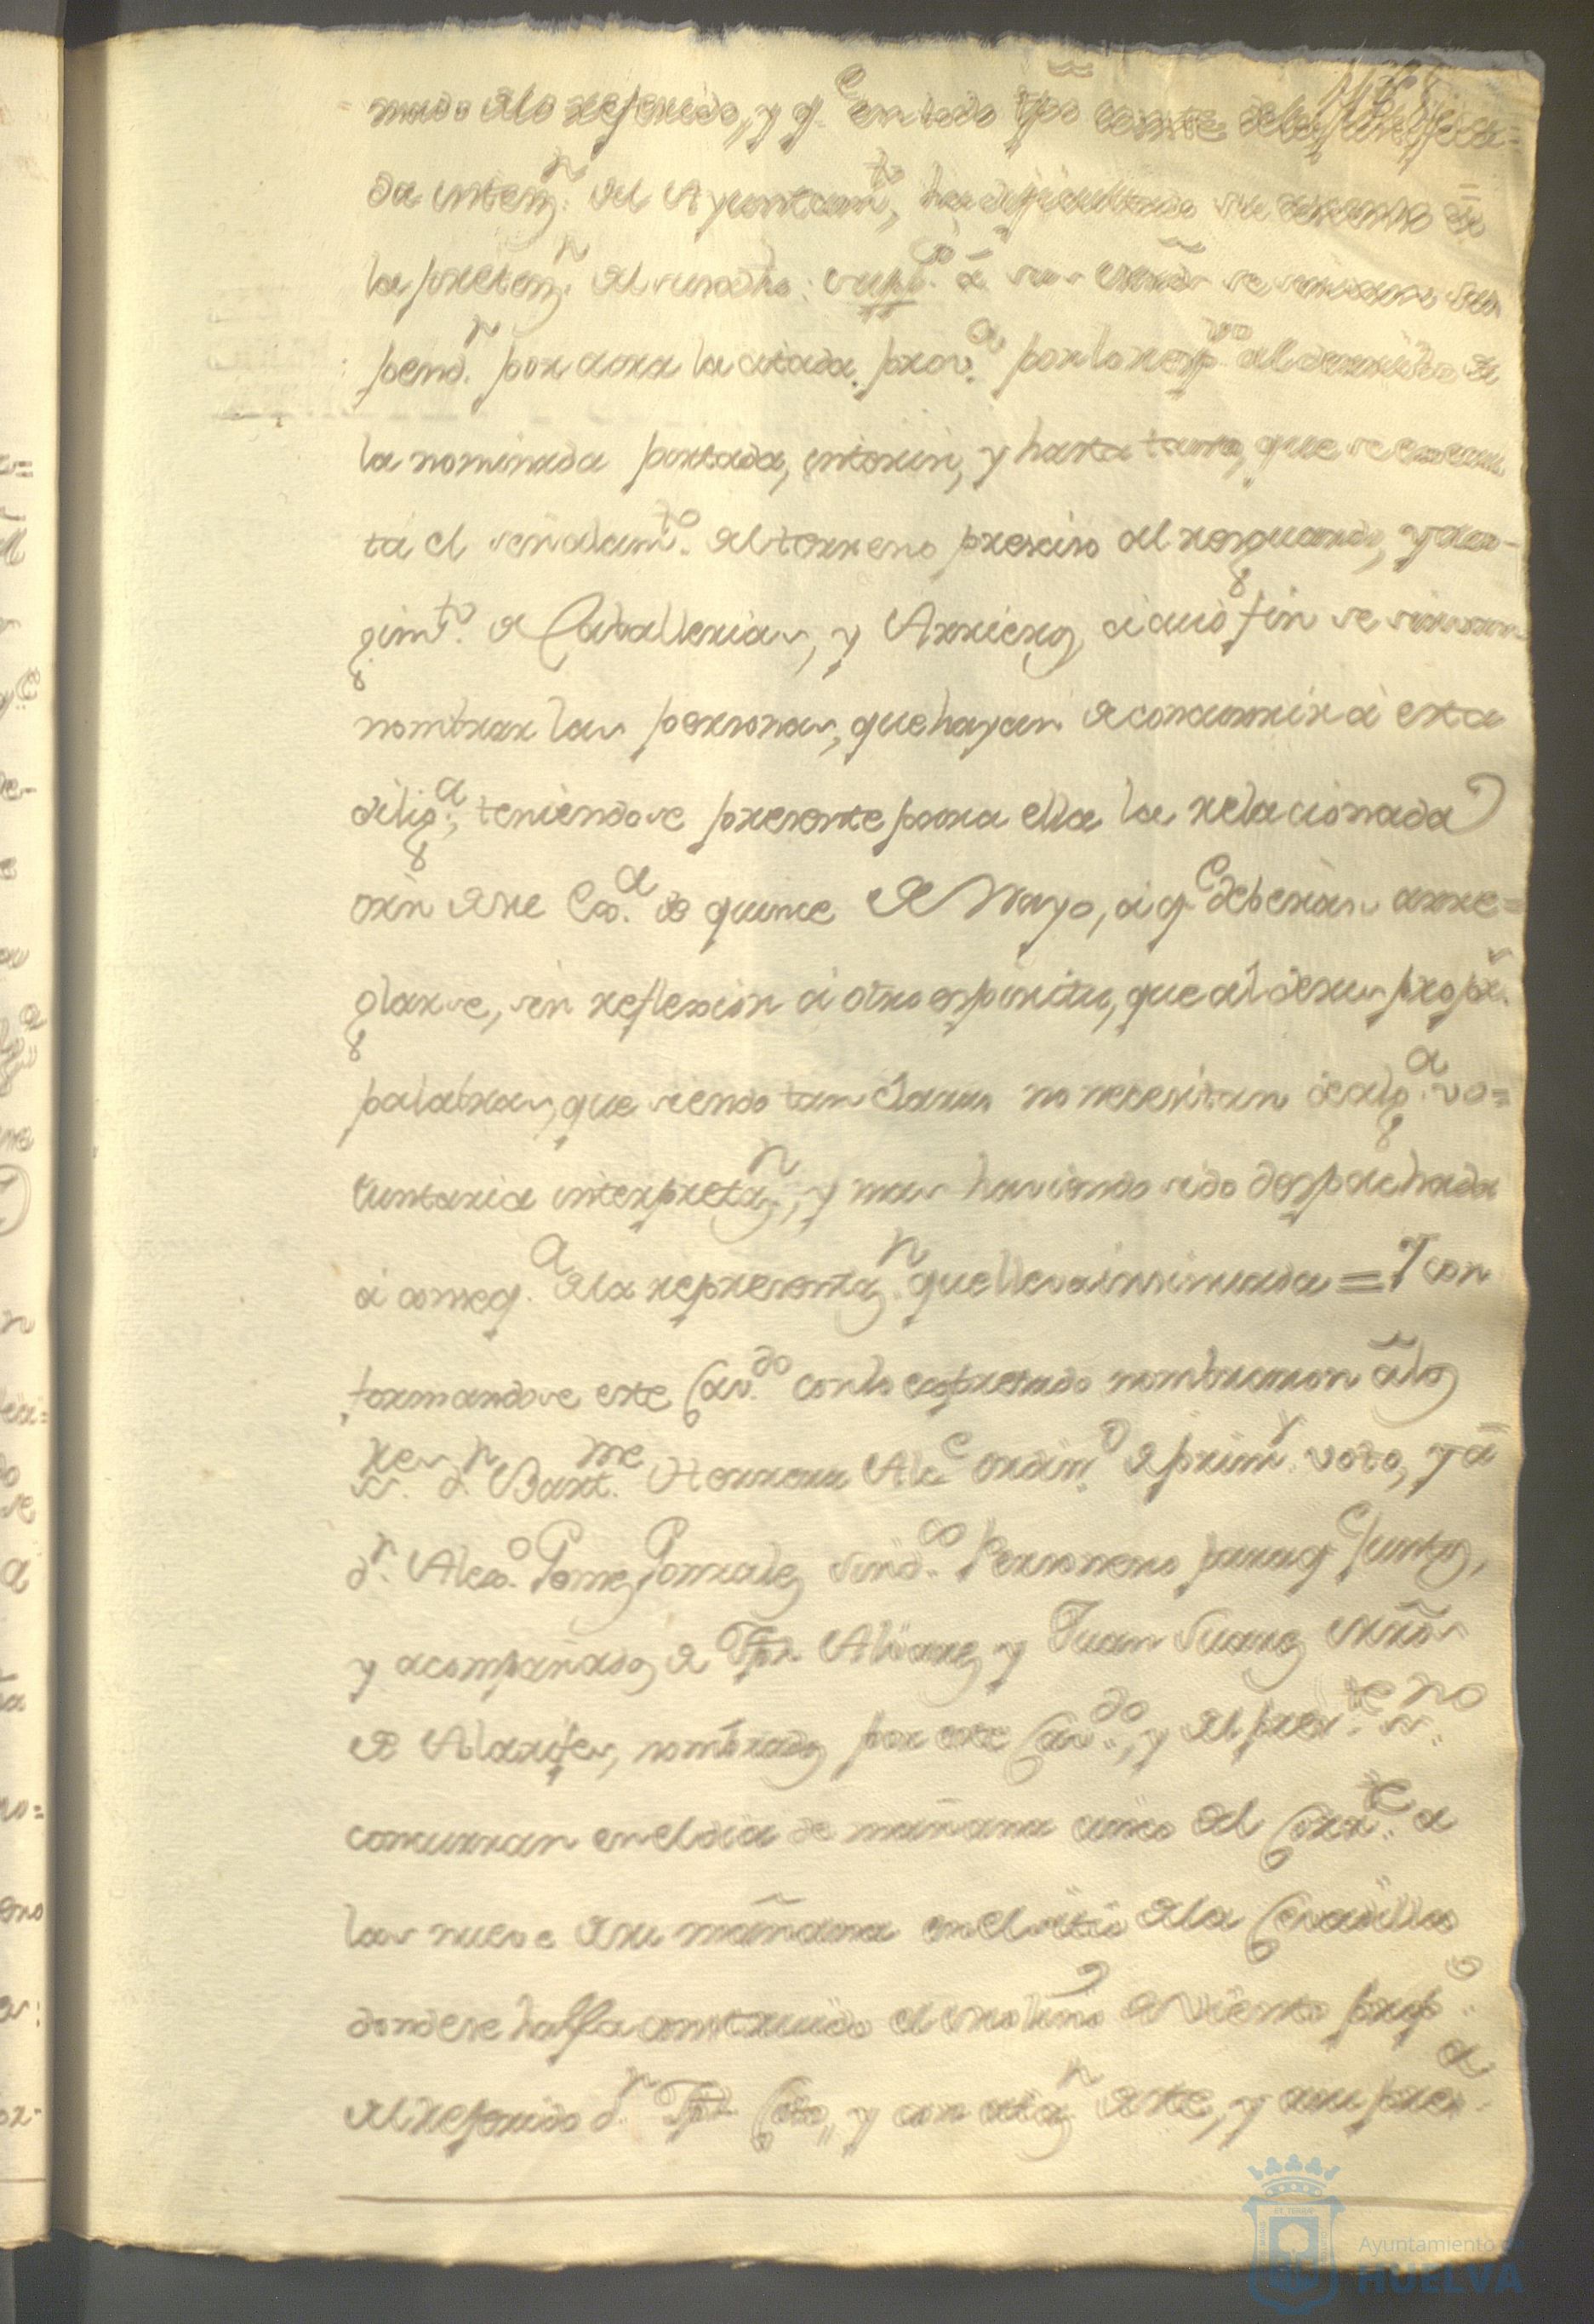 mado de lo referido, y q.e en todo tpõ conste de la
da intenz.n del Ayuntam.to, ha dificultado su
la pretenz.n del susodho: supp.co a sus se sirvan sus
pend.r por aora la citada prov.a por lo resp.vo al de
la nominada portada, interin, y hasta tanto, que se
ta el señalam.to del terreno preciso del resguardo, y
gim.to de Cavallerias, y Arrieros, a cuio fin se sirvan
nombrar las personas, que hayan de concurrir à esta
dilig.a, teniendose presente para ella la relacionada
orñ de su Ex.a de quince de Mayo, à q.e deberàn arre=
glarse, sin reflexion à otro espiritu, que al de sus prop.s
palabras, que siendo tan claras no necesitan de alg.a vo=
luntaria interpretaz.n, y mas haviendo sido despachada
à conseq.a de la representaz.n que lleva insinuada = Y con
formandose este Cav.do con lo expresado nombraron à los
S.res d.n Bart.me Herrera Alc.e ordin.o de prim.r voto, y à
d.n Alexo. Gomez Gonzalez Sind.co Personero para q.e Juntos,
y acompañados de Tph Alvarez y Juan Suarez Mrõs
de Alarifes, nombrados por este Cav.do, y del pres.te ss.no
concurran en el dia de mañana cinco del Corr.te a
las nueve de su mañana en el sitio de la
donde se halla construido el molino de Viento prop.o
del referido d.n Tph y con citaz.n de este, y a su pres.a
Ayuntamiento de
HUELVA